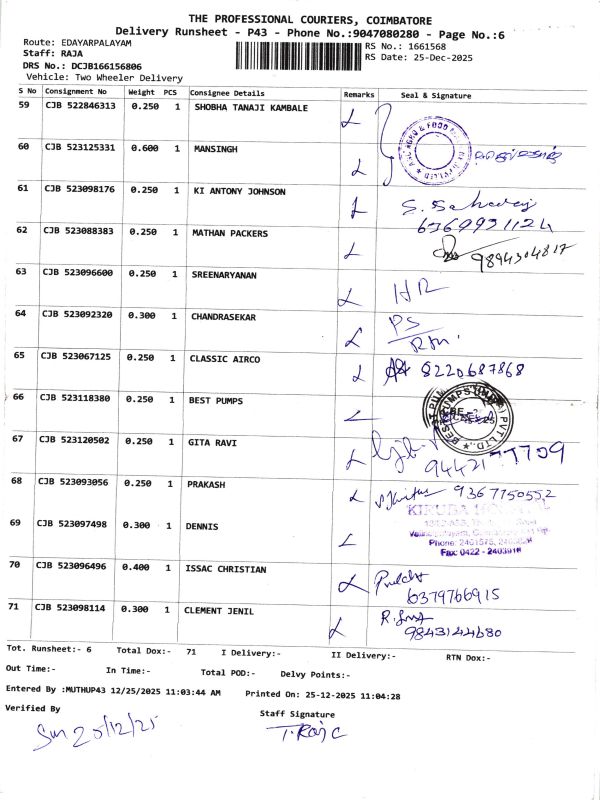 THE PROFESSIONAL COURIERS, COIMBATORE
Delivery Runsheet - P43 - Phone No.:9047080280 - Page No.:6
Route: EDAYARPALAYAM
Staff: RAJA
DRS No.: DCJB166156806
Vehicle: Two Wheeler Delivery
RS No.: 1661568
RS Date: 25-Dec-2025
S No Consignment No Weight PCS Consignee Details Remarks Seal & Signature
59 CJB 522846313 0.250 1 SHOBHA TANAJI KAMBALE
60 CJB 523125331 0.600 1 MANSINGH
61 CJB 523098176 0.250 1 KI ANTONY JOHNSON
6369931124
62 CJB 523088383 0.250 1 MATHAN PACKERS
9894304817
63 CJB 523096600 0.250 1 SREENARYANAN
HR
64 CJB 523092320 0.300 1 CHANDRASEKAR
PS
RTn.
65 CJB 523067125 0.250 1 CLASSIC AIRCO
8220687868
66 CJB 523118380 0.250 1 BEST PUMPS
67 CJB 523120502 0.250 1 GITA RAVI
9442177709
68 CJB 523093056 0.250 1 PRAKASH
9367750552
69 CJB 523097498 0.300 1 DENNIS
Fax: 0422 -
70 CJB 523096496 0.400 1 ISSAC CHRISTIAN
6379766915
71 CJB 523098114 0.300 1 CLEMENT JENIL
9843144680
Tot. Runsheet:- 6 Total Dox:- 71 I Delivery:- II Delivery:- RTN Dox:-
Out Time:- In Time:- Total POD:- Delvy Points:-
Entered By :MUTHUP43 12/25/2025 11:03:44 AM Printed On: 25-12-2025 11:04:28
Verified By
Staff Signature
25/12/25
T. Raja